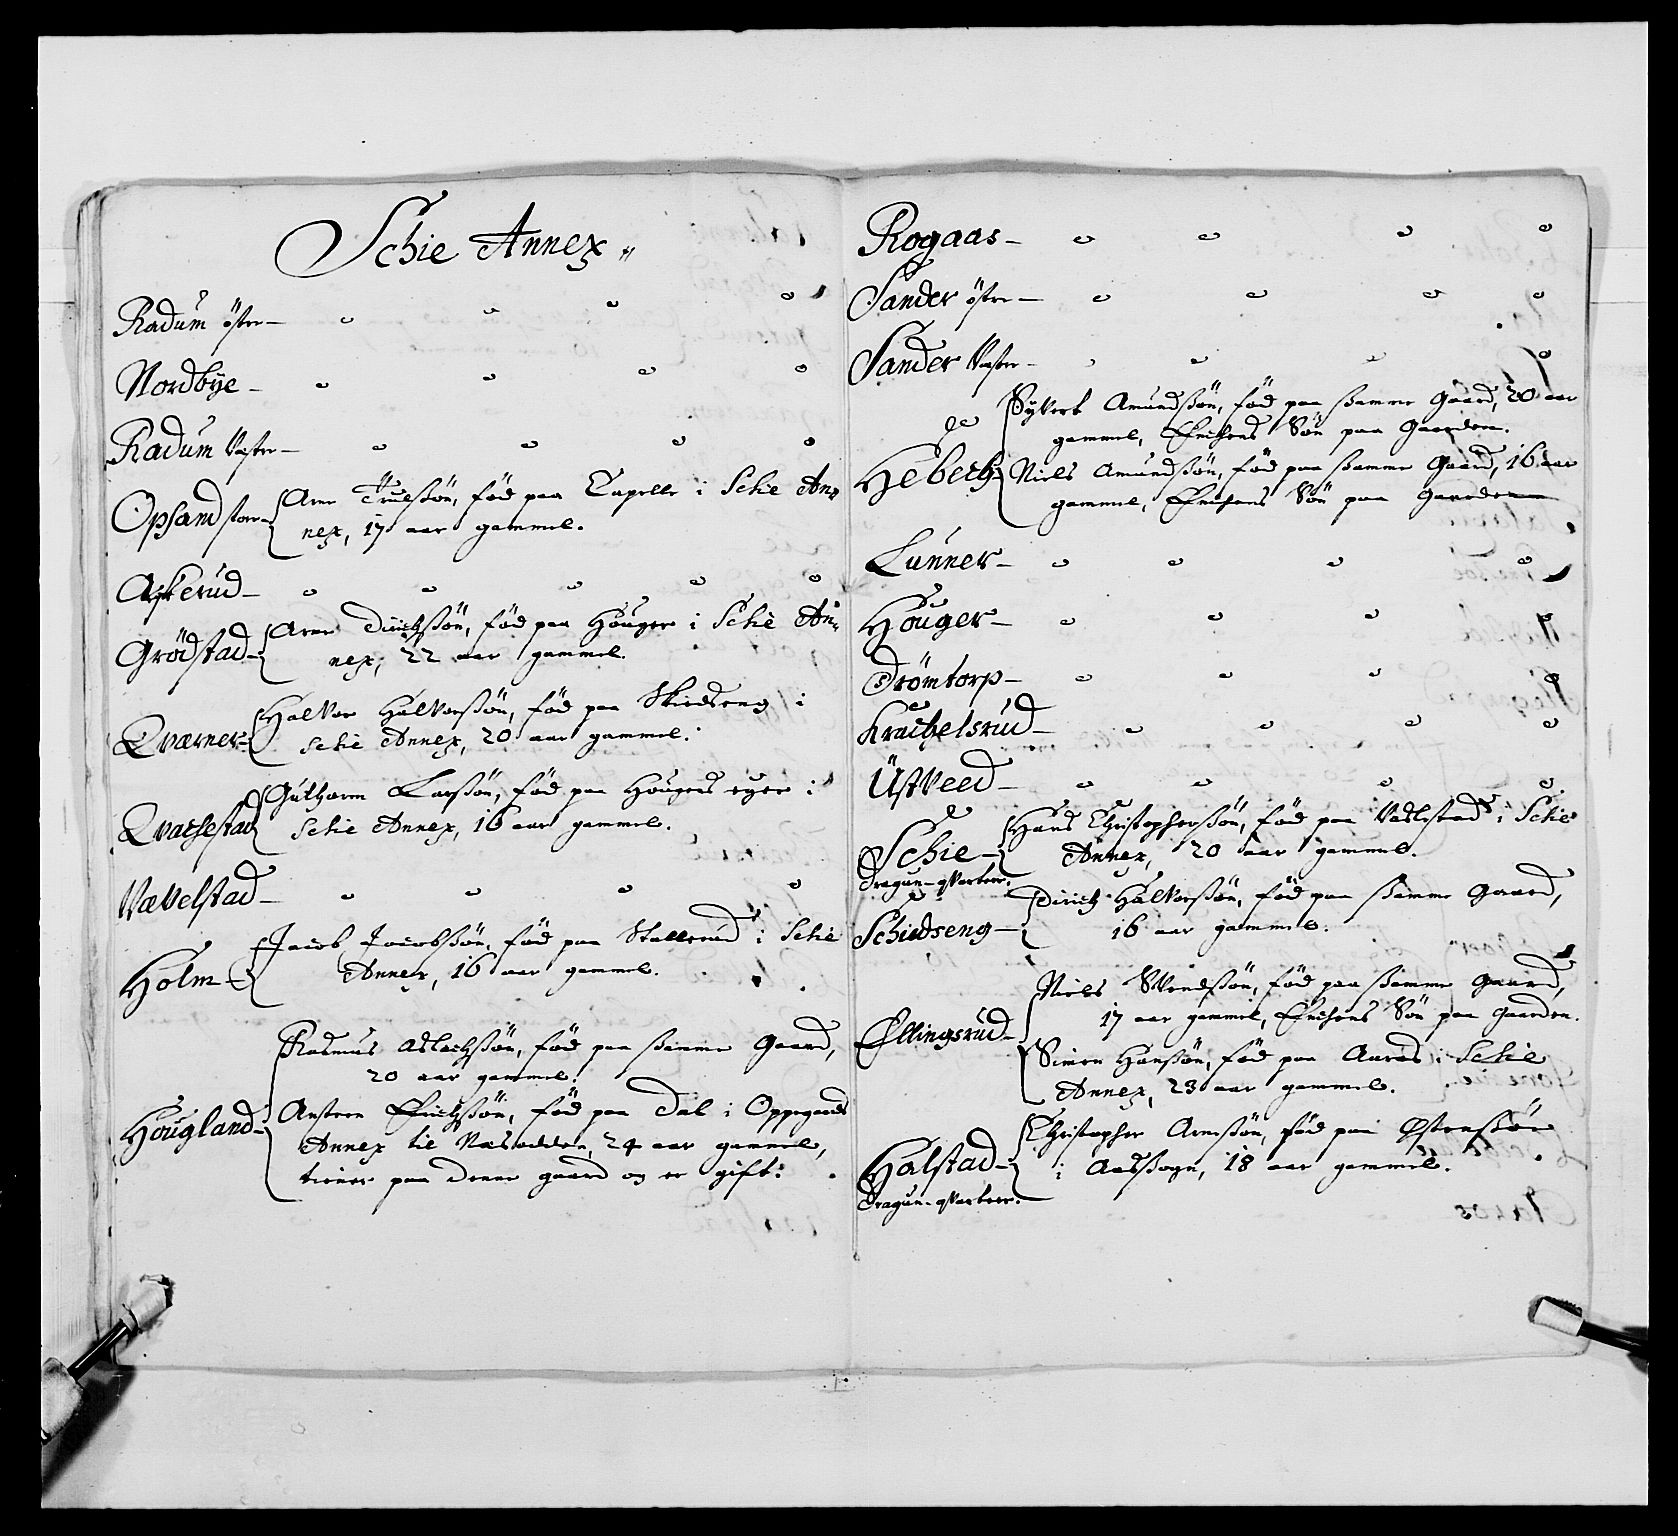 Schie Annex
Radum öster –
Nordbÿe –
Radum Vester –
Opsand stor – Arne Trulßön, född paa Capelle i Schie An-
nex, 17 aar gammel.
Askerud –
Grödstad – Arne Dirichßön, föd paa Höuger i Schie An-
nex, 22 aar gammel.
Qværner – Halvor Halvorßön, föd paa Skiedseng i
Schie Annex, 20 aar gammel.
Qvachestad Gutharm Larßön, föd paa Hougens eyer i
Schie Annex, 16 aar gammel.
Vævelstad –
Holm – Jacob Jacobßön, föd paa Stallerud i Schie
Annex, 16 aar gammel.
Rasmus Aslachßön, föd paa ßamme Gaard,
20 aar gammel.
Hougland – Anstenn Erichßön, föd paa Dal i Oppegaards
Annex til Næsodden, 24 aar gammel,
tiener paa denne gaard og er gift.
Rogaas –
Sander öster –
Sander Vester –
Syvert Amundßön, föd paa ßamme Gaard, 20 aar
gammel, Enchens Sön paa Gaarden.
Hebech – Niels Amundßön, föd paa ßamme Gaard, 16 aar
gammel, Enchens Sön paa Gaarden
Lunner –
Höuger –
Drömtorp –
Krachelsrud –
Ustveed –
Schie – Hans Christopherßön, föd paa Vadlestad i Schie
Annex, 20 aar gammel.
Dragun-qvarteer.
Schiedseng – Dirich Halvorßön, föd paa ßamme Gaard,
16 aar gammel.
Niels Svendßön, föd paa ßamme Gaard,
17 aar gammel, Enchens Sön paa Gaarden.
Ellingsrud –
Simen Hanßön, föd paa Aaraas i Schie
Annex, 23 aar gammel.
Halstad – Christopher Arneßön, föd paa Østensßön
i Aasßogn, 18 aar gammel.
Dragun-qvarteer.